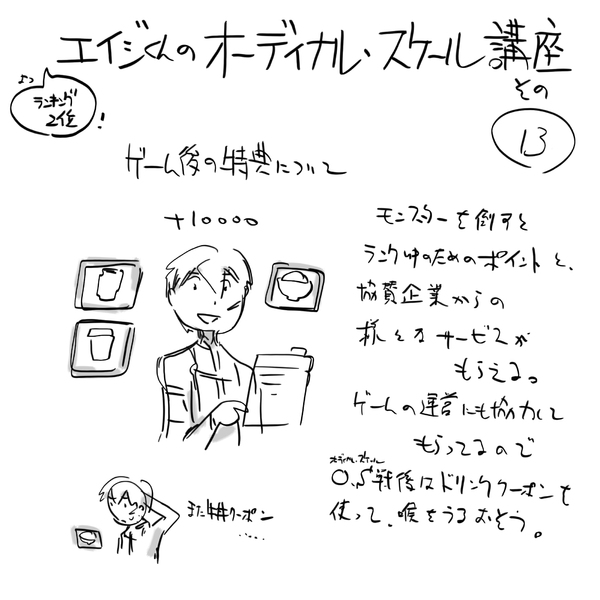 エイジくんのオーディカル・スケール講座
ランキング
2位
!
その
13
ゲーム後の特典について
+10000
モンスターを倒すと
ランクUPのためのポイントと、
協賛企業からの
様々なサービスが
もらえる。
ゲームの運営にも協力して
もらってるので
オーディカル・スケール
O.S戦後はドリンククーポンを
使って、喉をうるおそう。
また丼クーポン
.....